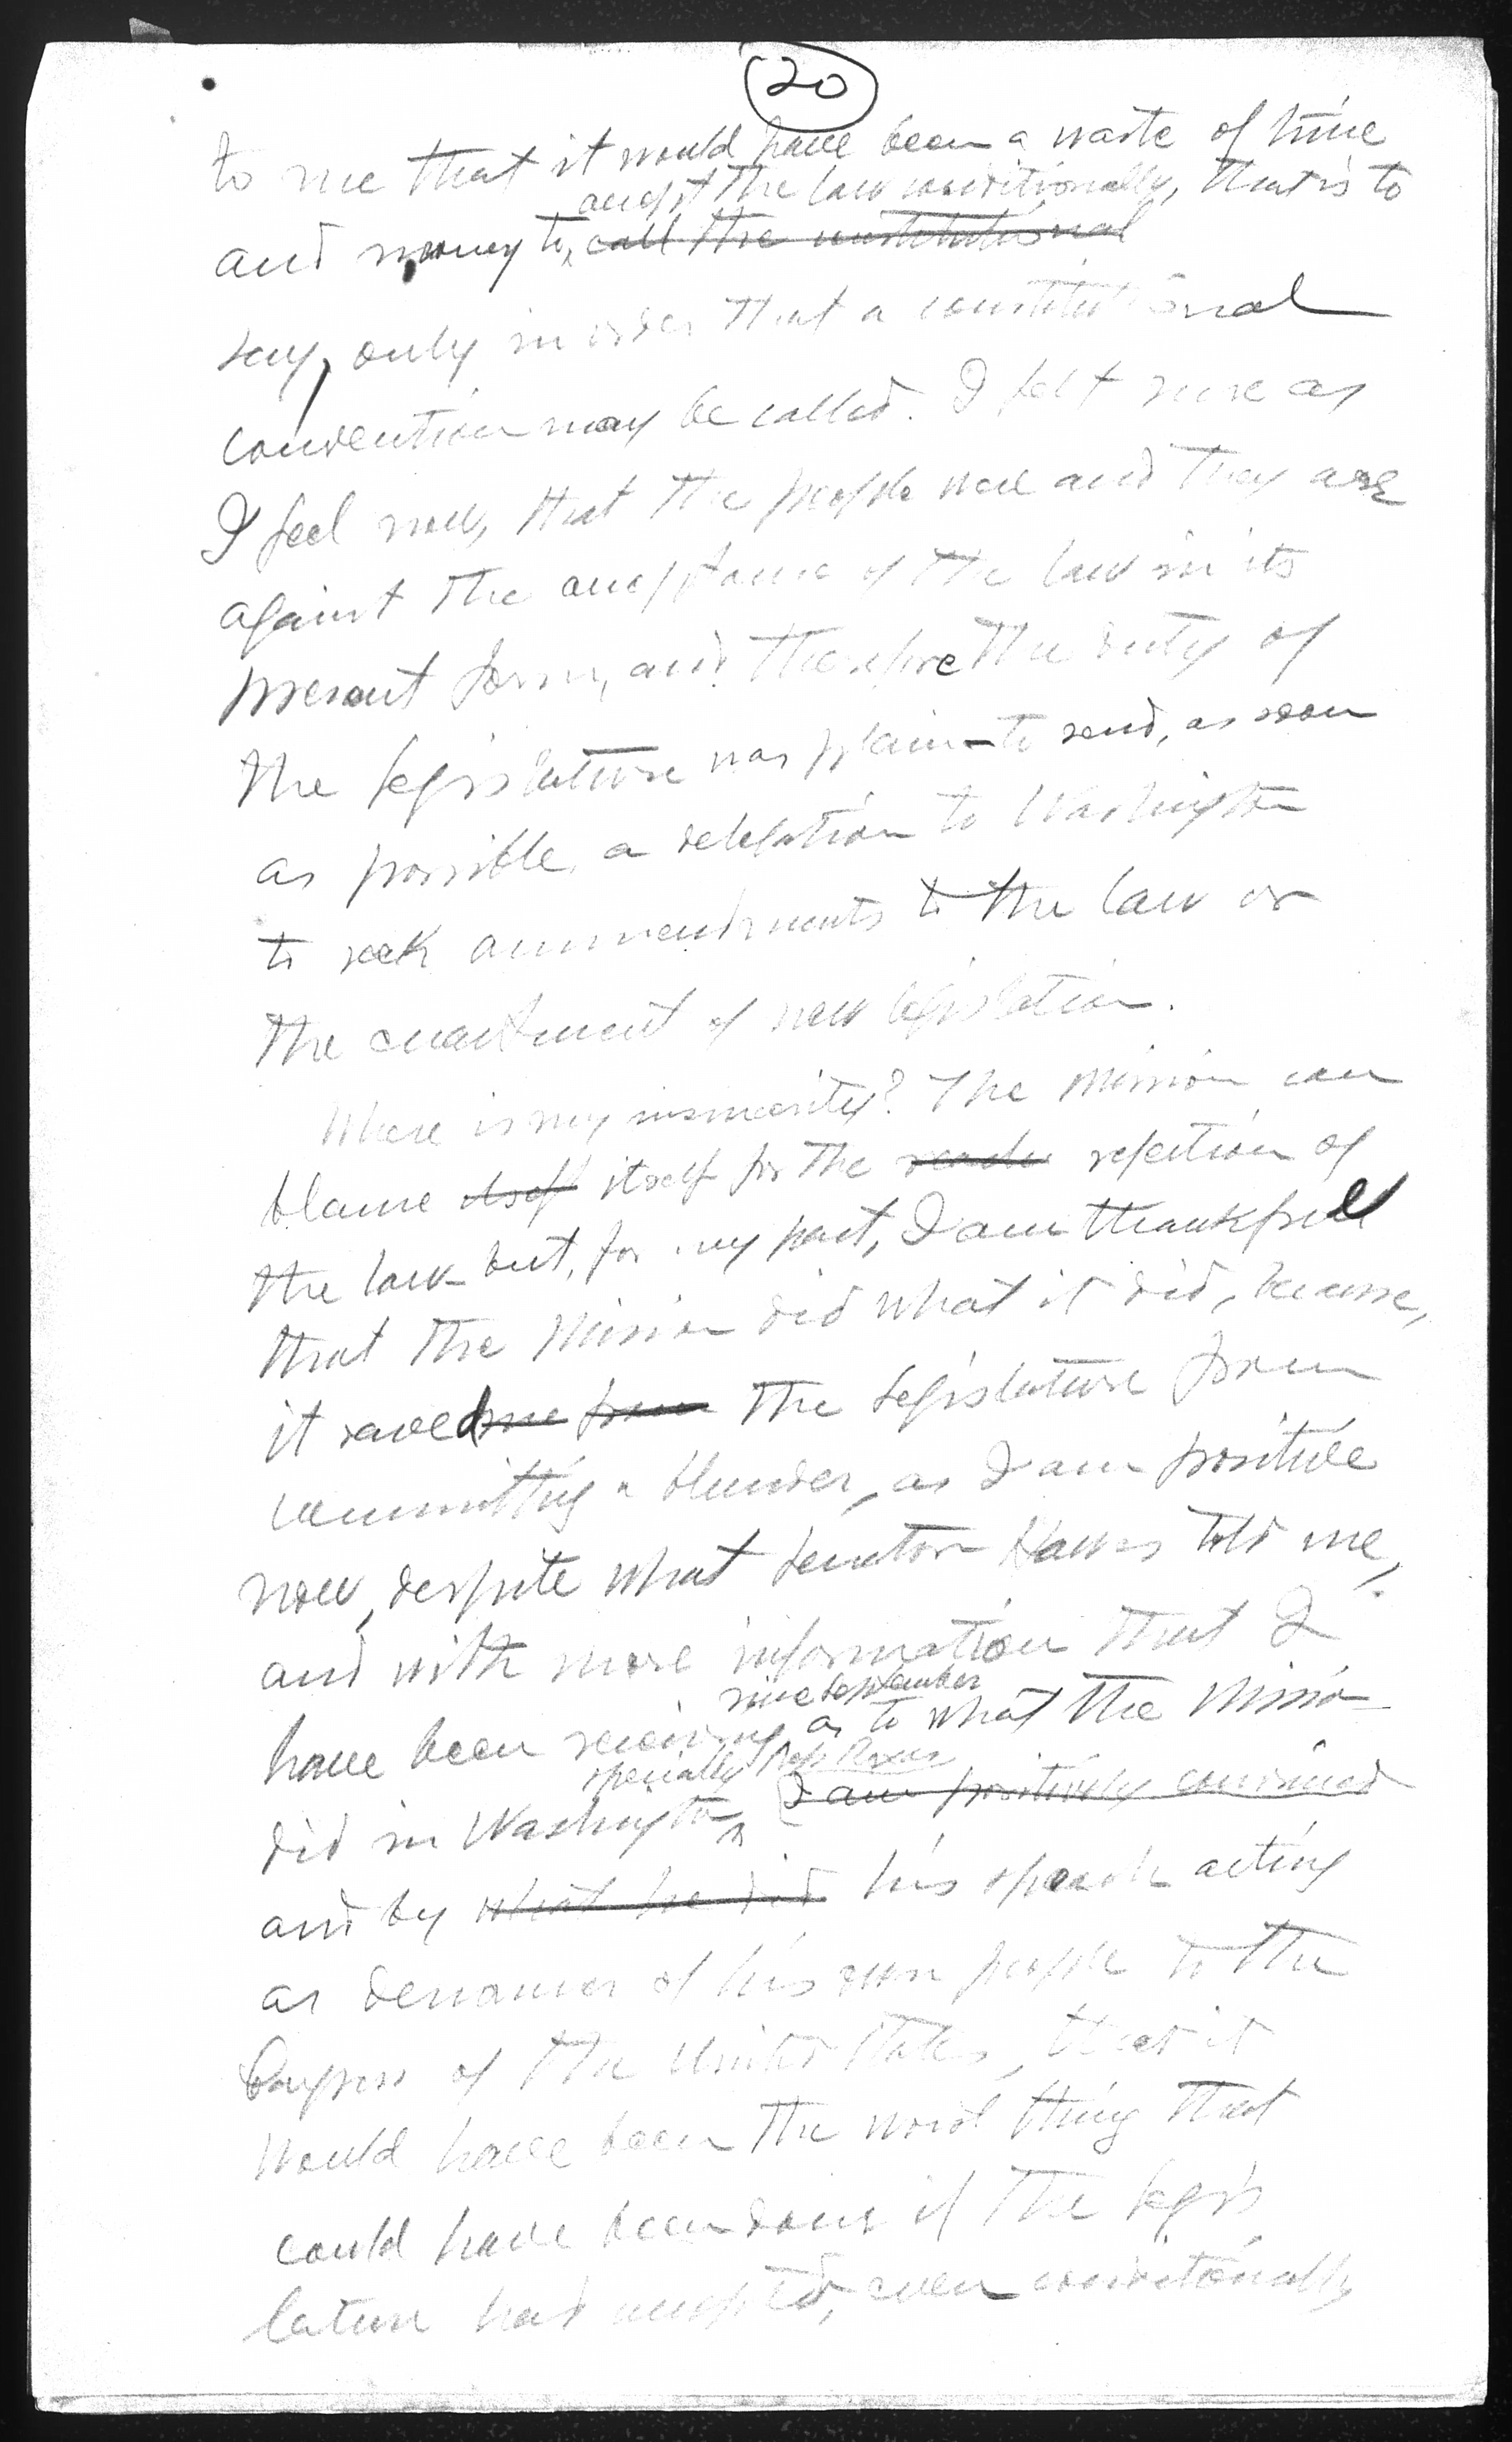 20
to me that it would have been a waste of time
accept the law conditionally, that is to
and money to call the constitutional
say, only in order that a constitutional
convention may be called. I felt sure as
I feel now, that the people were and they are
against the acceptance of the law in its
present form, and therefore the duty of
the legislature was plain - to send, as soon
as possible, a delegation to Washington
to seek ammendments to the law or
the enactment of new legislation.
Where is my insincerity? The Mission can
blame itself itself for the rejection of
the law - but, for my part, I am thankful
that the Mission did what it did, because,
it saved me from the Legislature from
committing a blunder, as I am positive
now, despite what Senator Hawes told me,
and with more information that I
since September
have been receiving as to what the Mission
specially Pres. Roxas
did in Washington, I am positively convinced
and by what he did his speech acting
as denouncer of his own people to the
Congress of the United States, that it
would have been the worst thing that
could have been done if the legis
lature had accepted, even conditionally